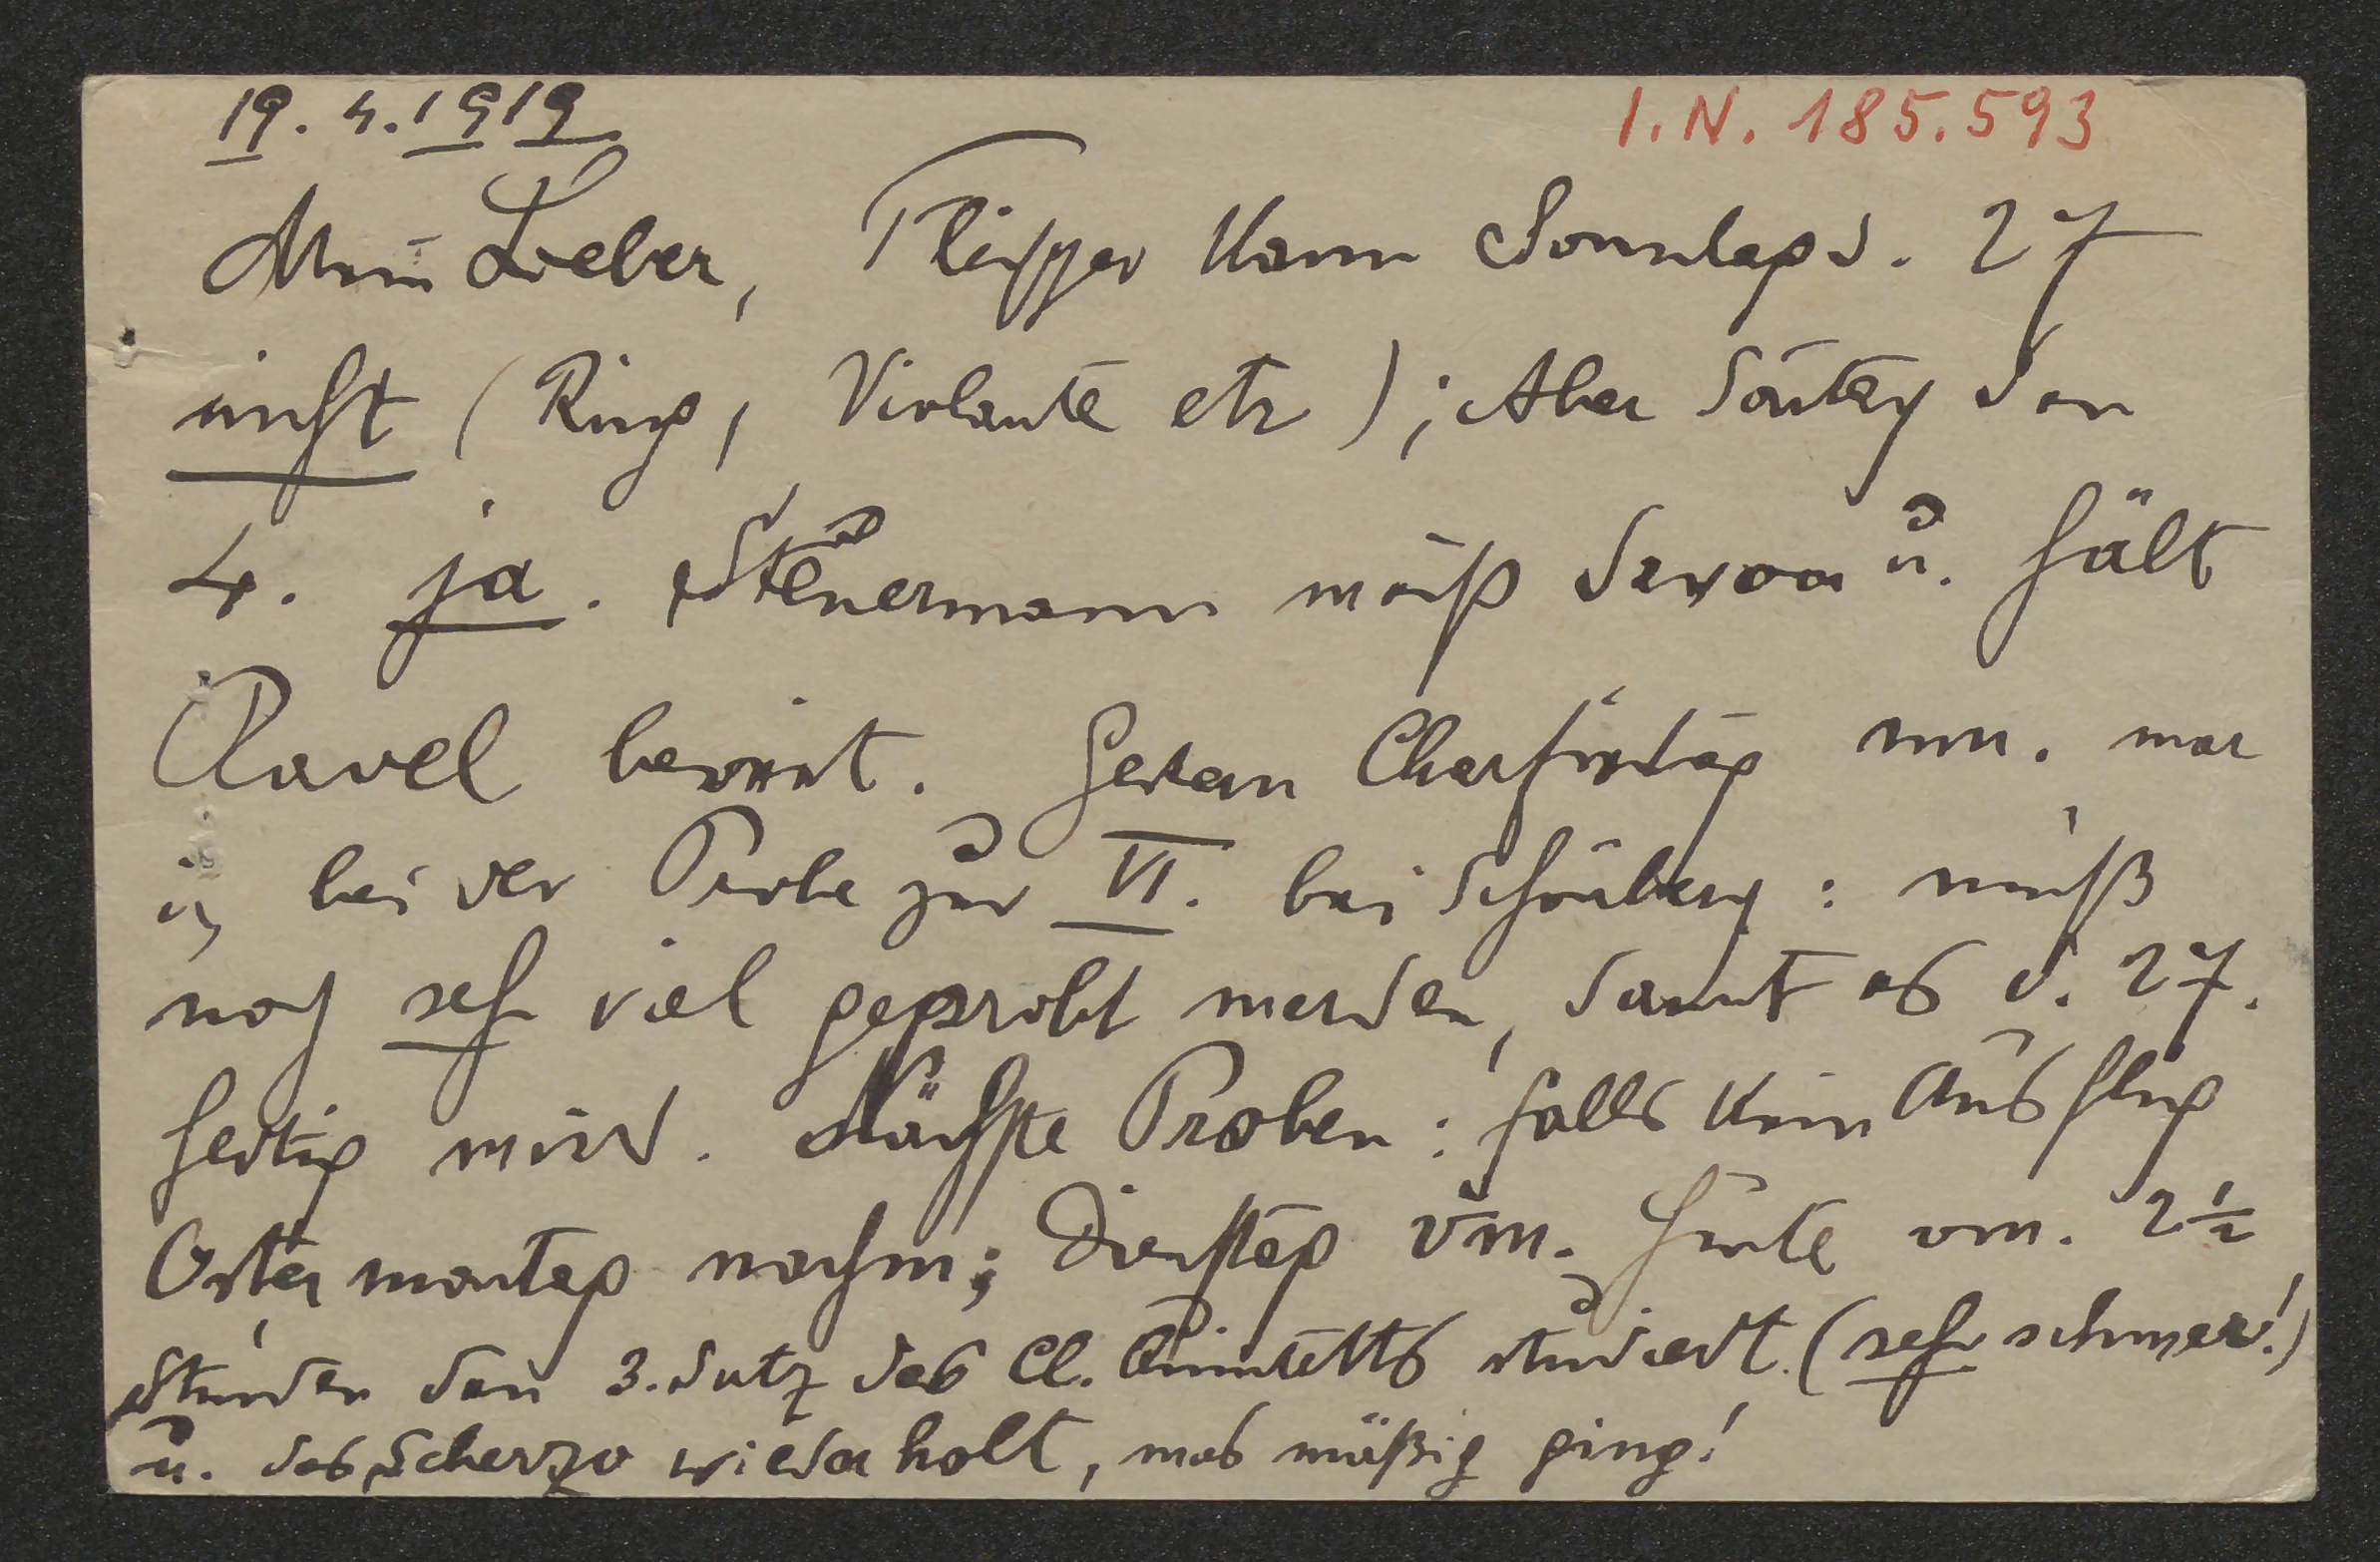 19.4.1919
I.N. 185.593
Mein Lieber, Fleischer kann Sonntags d. 27
nicht (Ring, Violanta etc); Aber Sonntag den
4. ja. Steuermann weiß davon u. hält
Ravel bereit. Gestern Charfreitag nm. war
ich bei der Probe zur VI. bei Schönberg: muß
noch sehr viel geprobt werden, damit es d. 27.
fertig wird. Nächste Proben: falls kein Ausflug
Ostermontag nachm; Dienstag vm. Heute vm. 2½
Stunden den 3. Satz des Cl. Quintetts studiert (sehr schwer!)
u. das Scherzo wiederholt, was mäßig ging!